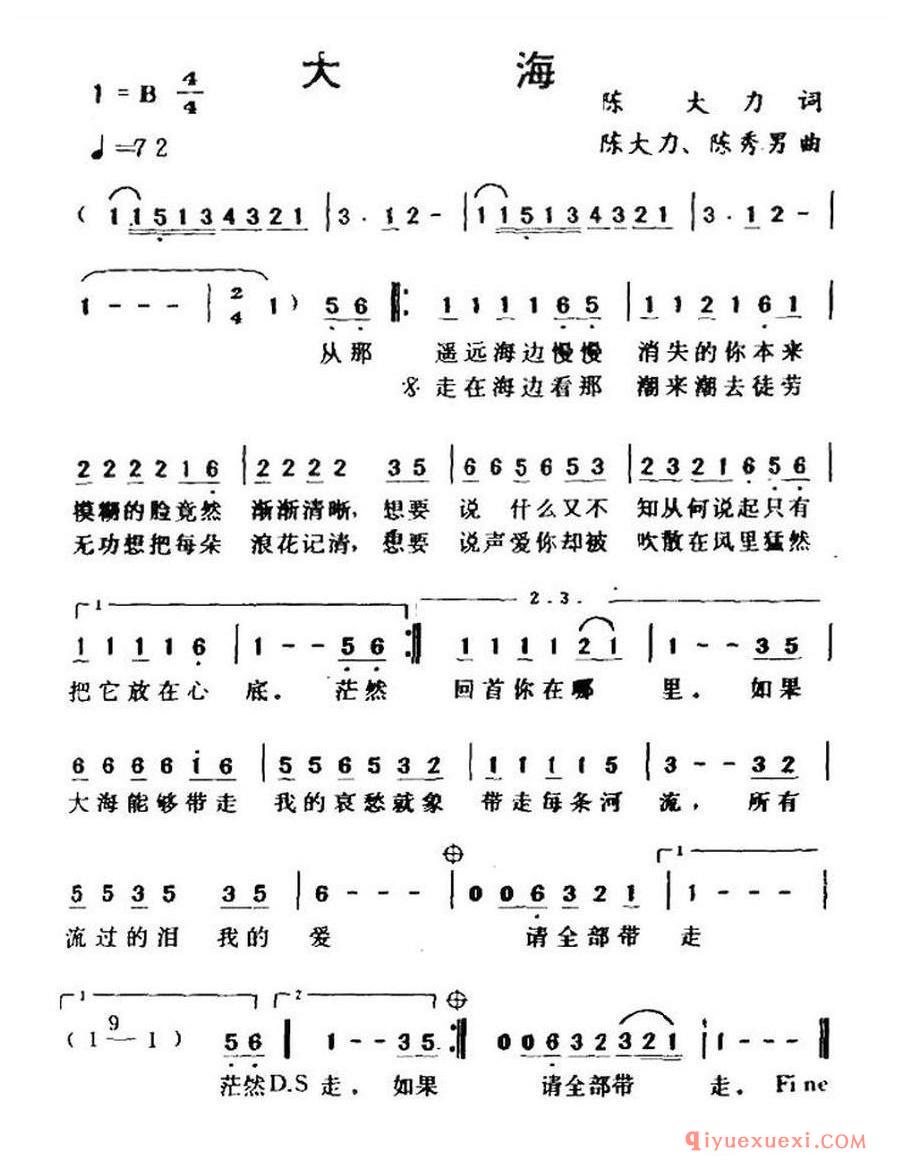 大 海
1=B 4/4
陈 大 力 词
♩=72
陈大力、陈秀男 曲
( 1 1 5 1 3 4 3 2 1 | 3 . 1 2 - | 1 1 5 1 3 4 3 2 1 | 3 . 1 2 - |
1 - - - | 2/4 1 ) 5 6 ‖: 1 1 1 1 6 5 | 1 1 2 1 6 1 |
从那 遥远海边慢慢 消失的你本来
𝄋 走在海边看那 潮来潮去徒劳
2 2 2 2 1 6 | 2 2 2 2 3 5 | 6 6 5 6 5 3 | 2 3 2 1 6 5 6 |
模糊的脸竟然 渐渐清晰,想要 说 什么又不 知从何说起只有
无功想把每朵 浪花记清,想要 说声爱你却被 吹散在风里猛然
1 2.3.
1 1 1 1 6 | 1 - - 5 6 :‖ 1 1 1 1 2 1 | 1 - - 3 5 |
把它放在心 底。 茫然 回首你在哪 里。 如果
6 6 6 6 i 6 | 5 5 6 5 3 2 | 1 1 1 1 5 | 3 - - 3 2 |
大海能够带走 我的哀愁就象 带走每条河 流, 所有
𝄌 1
5 5 3 5 3 5 | 6 - - - | 0 0 6 3 2 1 | 1 - - - |
流过的泪 我的 爱 请全部带 走
1 2 𝄌
( 1 9 — 1 ) 5 6 ‖ 1 - - 3 5 :‖ 0 0 6 3 2 3 2 1 | 1 - - - ‖
茫然 D.S 走. 如果 请全部带 走. Fine
qiyuexuexi.com